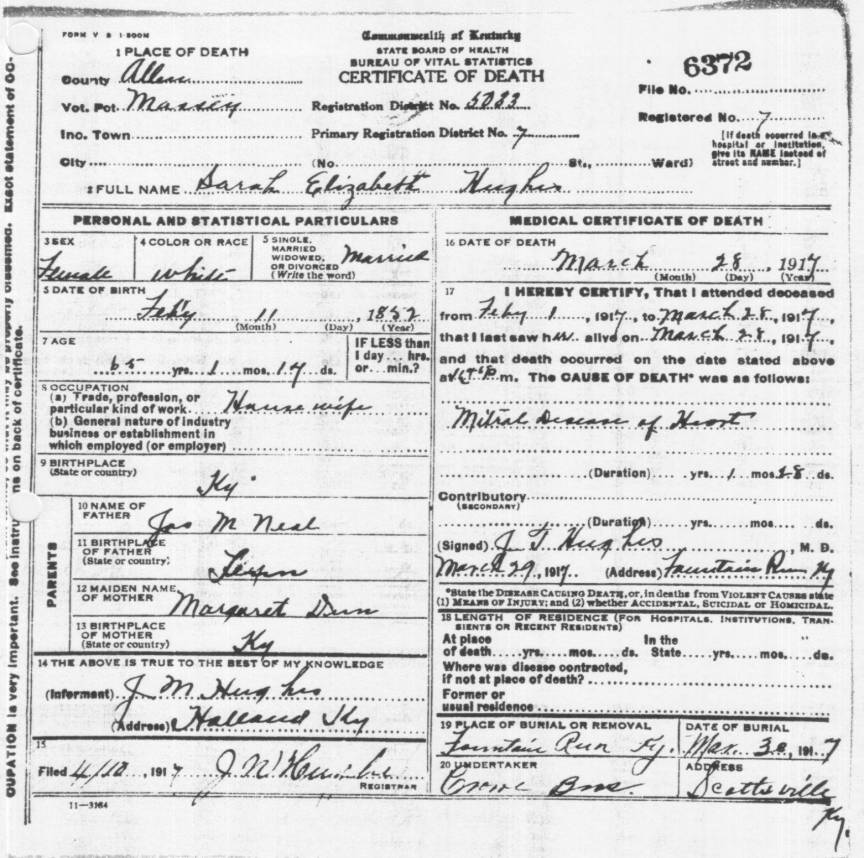 FORM V S 1-500M
Commonwealth of Kentucky
STATE BOARD OF HEALTH
BUREAU OF VITAL STATISTICS
CERTIFICATE OF DEATH
1 PLACE OF DEATH
County Allen
Vot. Pct. Massey
Inc. Town
City (No. St., Ward)
Registration District No. 5033
Primary Registration District No. 7
6372
File No.
Registered No. 7
[If death occurred in a hospital or institution, give its NAME instead of street and number.]
2 FULL NAME Sarah Elizabeth Hughes
PERSONAL AND STATISTICAL PARTICULARS
3 SEX Female
4 COLOR OR RACE White
5 SINGLE, MARRIED WIDOWED, OR DIVORCED (Write the word) Married
5 DATE OF BIRTH
Feb'y 11, 1852
(Month) (Day) (Year)
7 AGE
65 yrs. 1 mos. 17 ds.
IF LESS than 1 day... hrs. or... min.?
8 OCCUPATION
(a) Trade, profession, or particular kind of work House wife
(b) General nature of industry business or establishment in which employed (or employer)
9 BIRTHPLACE
(State or country)
Ky
PARENTS
10 NAME OF FATHER
Jas M Neal
11 BIRTHPLACE OF FATHER
(State or country)
12 MAIDEN NAME OF MOTHER
Margaret Dunn
13 BIRTHPLACE OF MOTHER
(State or country)
Ky
14 THE ABOVE IS TRUE TO THE BEST OF MY KNOWLEDGE
(Informant) J. M Hughes
(Address) Holland Ky
15
Filed 4/10, 1917
REGISTRAR
11-3184
MEDICAL CERTIFICATE OF DEATH
16 DATE OF DEATH
March 28, 1917
(Month) (Day) (Year)
17 I HEREBY CERTIFY, That I attended deceased
from Feby 1, 1917, to March 28, 1917,
that I last saw her alive on March 28, 1917,
and that death occurred on the date stated above
at m. The CAUSE OF DEATH* was as follows:
Mitral Disease of Heart
(Duration) yrs. 1 mos. 28 ds.
Contributory
(SECONDARY)
(Duration) yrs. mos. ds.
(Signed) J. T Hughes, M. D.
March 29, 1917 (Address) Fountain Run Ky
*State the DISEASE CAUSING DEATH, or, in deaths from VIOLENT CAUSES state
(1) MEANS OF INJURY; and (2) whether ACCIDENTAL, SUICIDAL or HOMICIDAL.
18 LENGTH OF RESIDENCE (FOR HOSPITALS, INSTITUTIONS, TRANSIENTS OR RECENT RESIDENTS)
At place of death yrs. mos. ds. In the State yrs. mos. ds.
Where was disease contracted, if not at place of death?
Former or usual residence
19 PLACE OF BURIAL OR REMOVAL
Fountain Run Ky.
DATE OF BURIAL
Mar. 30, 1917
20 UNDERTAKER
Crowe Bros.
ADDRESS
Scottsville
Ky.
OUPATION is very important. See instruc
ns on back of certificate.
properly classified. Exact statement of OC-